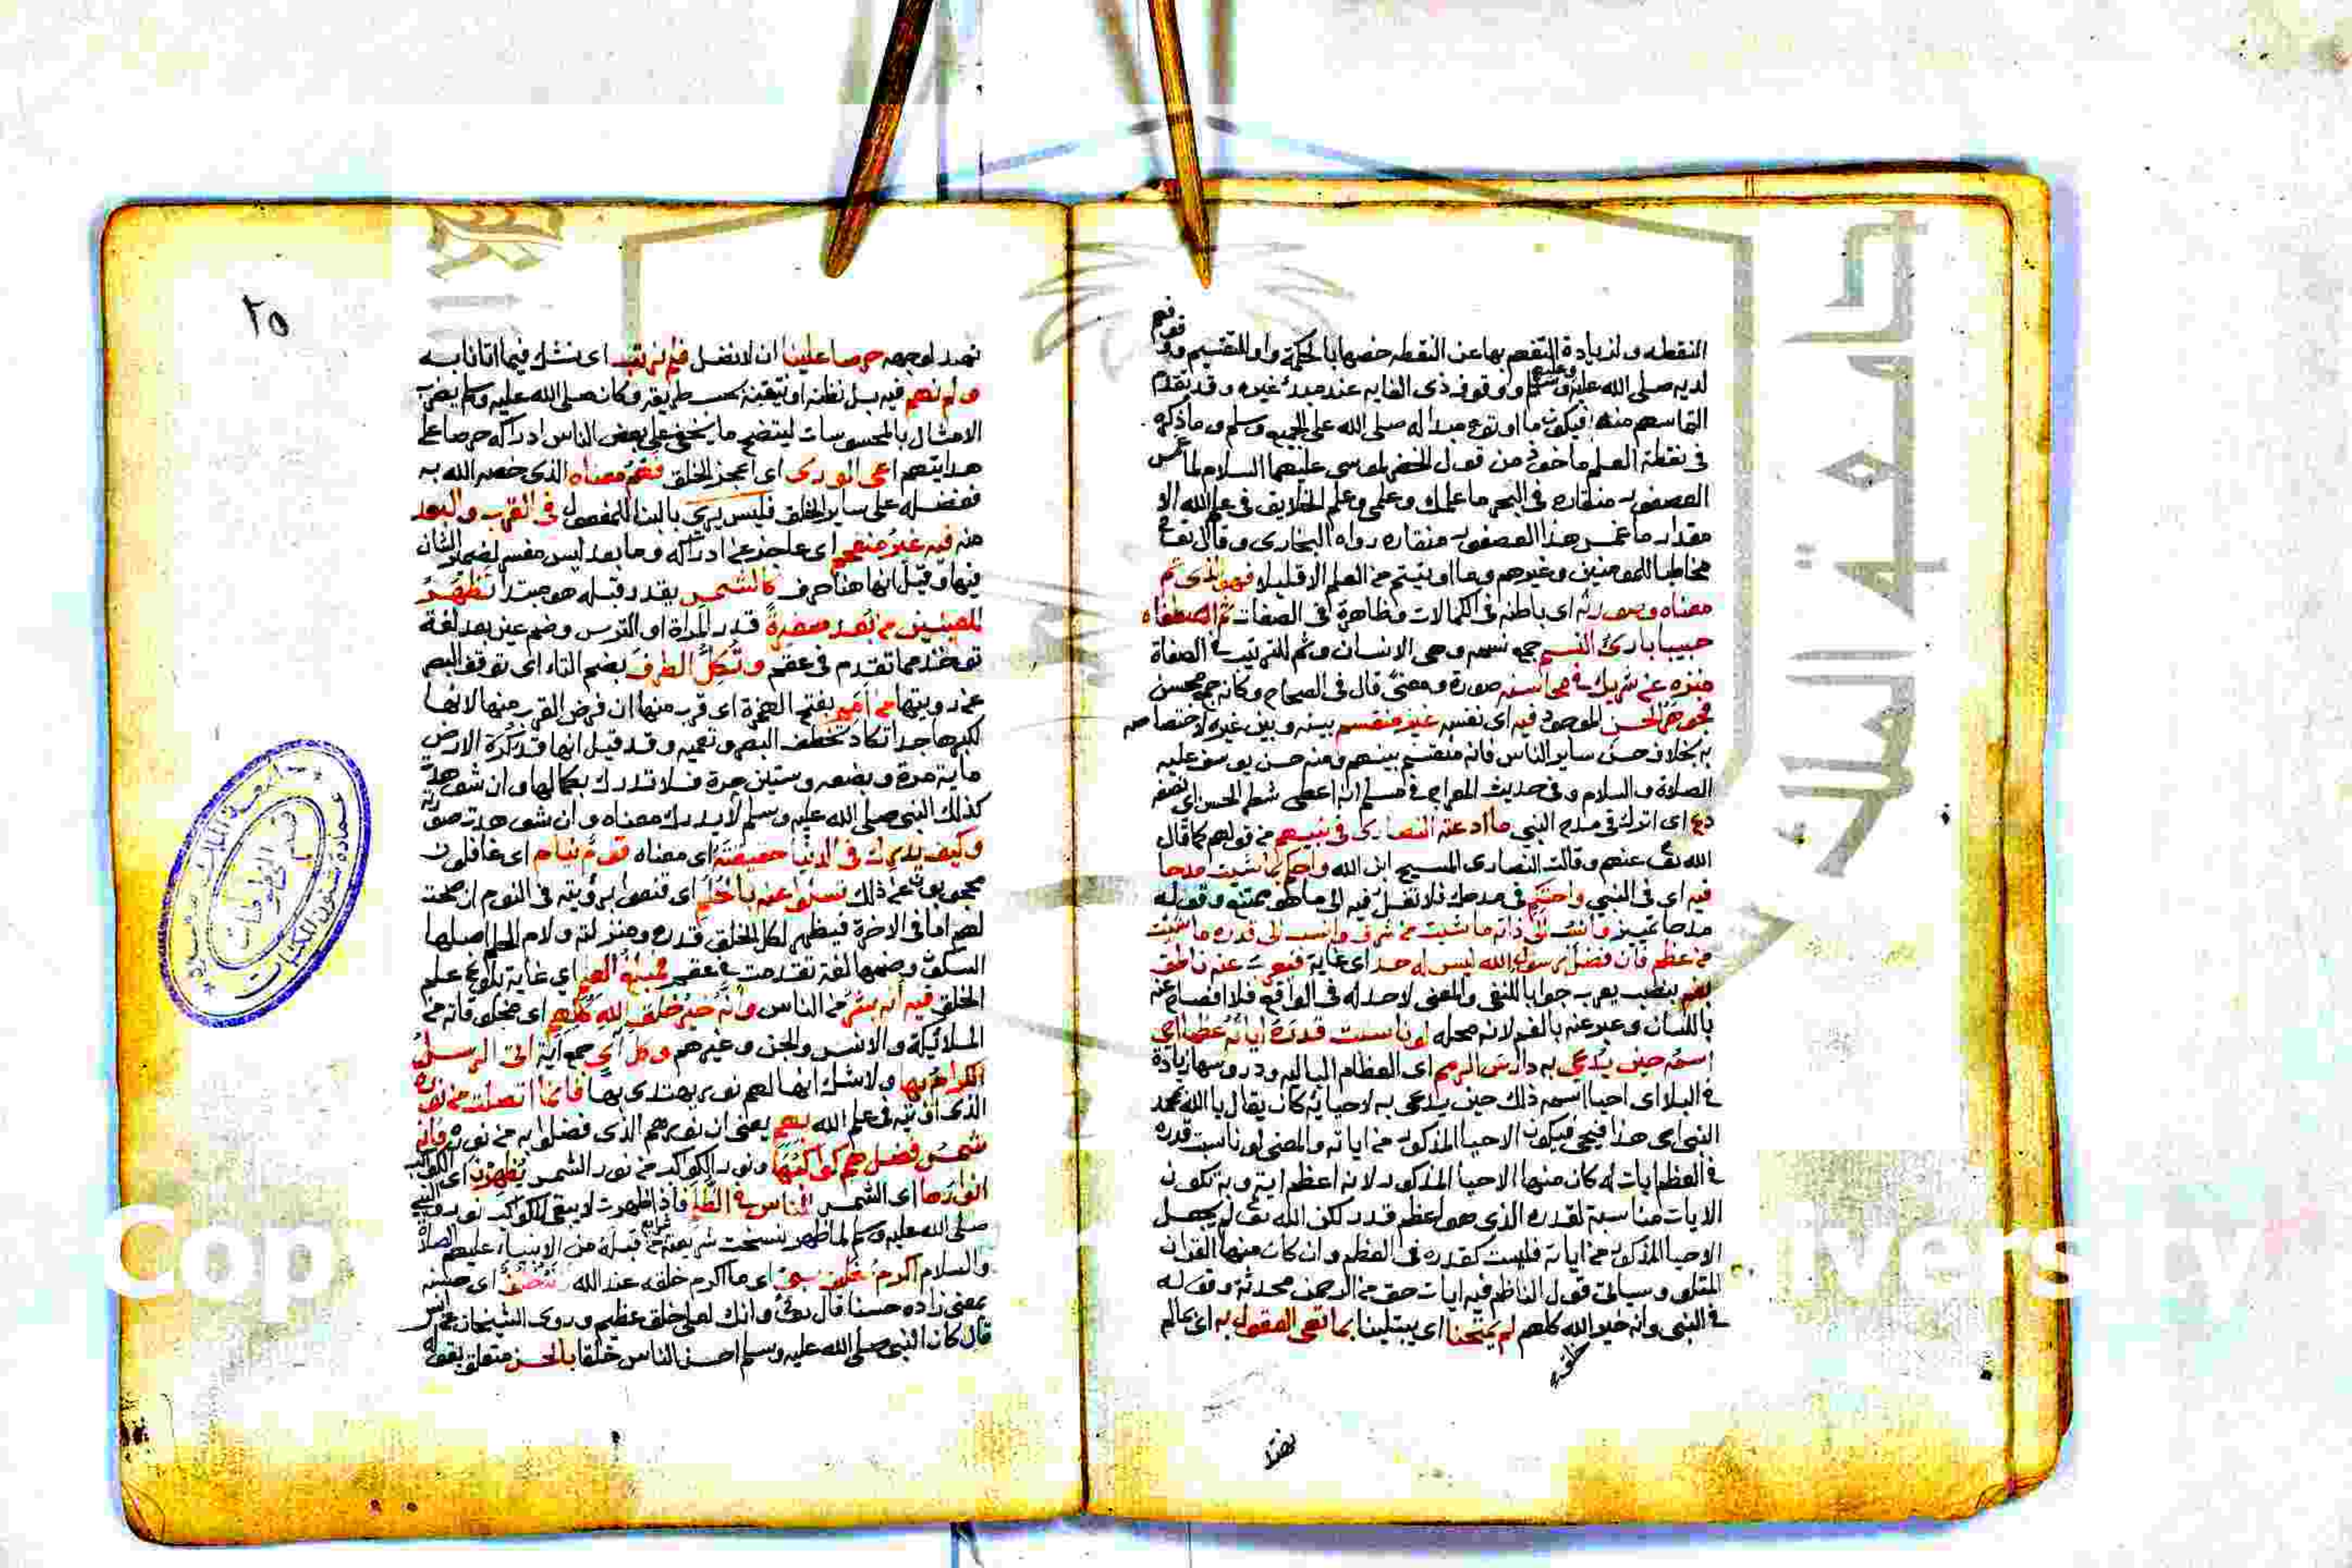 النقطه ولزيادة التفهم بها عن النقطه خصها بالحكمة واو للتقسيم وقو
لديه صلى الله عليه وعليهم وسلم ووقوف ذى الغايه عند مبدء غيره وقد تقدم
فى نقطة العلم ماخوذ من قول الخضر لموسى عليهما السلام لما غمس
العصفور منقاره فى البحر ما علمك وعلمى وعلم الخلايق فى علم الله الا
مقدار ما غمس هذا العصفور منقاره رواه البخارى وقال تعالى
مخاطبا للمومنين وغيرهم وما اوتيتم من العلم الا قليلا فهو الذى تم
معناه وصورته اى باطنه فى الكمالات وظاهره فى الصفات ثم اصطفاه
حبيبا بارئ النسم جمع نسمه وهى الانسان وثم للترتيب فى الصفاة
منزه عن شريك فى محاسنه صورة ومعنى قال فى الصحاح وكانه جمع محسن
فجوهر الحسن الموجود فيه اى نفسه غير منقسم بينه وبين غيره لاختصاصه
به بخلاف حسن ساير الناس فانه منقسم بينهم ومنه حسن يوسف عليه
الصلاة والسلام وفى حديث المعراج فى مسلم انه اعطى شطر الحسن اى نصفه
دع اى اترك فى مدح النبي ما ادعته النصارى فى نبيهم من قولهم كما قال
الله تعالى عنهم وقالت النصارى المسيح ابن الله واحكم بما شيت مدحا
فيه اى فى النبي واحتكم فى مدحك فلا تغل فيه الى ما هو ممتنع وقوله
مدحا تمييز وانسب الى ذاته ما شيت من شرف وانسب الى قدره ما شيت
من عظم فان فضل رسول الله ليس له حد اى غاية فيعرب عنه ناطق
بفم بنصب يعرب جوابا للنفى والمعنى لا حد له فى الواقع فلا افصاح عنه
باللسان وعبر عنه بالفم لانه محله لو ناسبت قدره اياته عظما احيى
اسمه حين يدعى به دارس الرمم اى العظام الباليه ودروسها زيادة
فى البلا اى احيا اسمه ذلك حين يدعى به لاحيائه كان يقال يا الله بمحمد
النبى احى هذا فيحيى فيكون الاحيا المذكور من اياته والمعنى لو ناسبت قدره
فى العظم ايات له كان منها الاحيا المذكور لانه اعظم اية وبه تكون
الايات مناسبة لقدره الذى هو اعظم قدر لكن الله تعالى لم يجعل
الاحيا المذكور من اياته فليست كقدره فى العظم وان كان منها القران
المتلو وسيأتى قول الناظم فيه ايات حق من الرحمن محدثة وقوله
فى النبى وانه خير الله كلهم لم يمتحنا اى يبتلينا بما تعى العقول به اى بما لم
خلق
٢٥
حرصا علينا ان لا نضل فلم نرتب اى نشك فيما اتانا به
ولم نهم فيه
الامثال بالمحسوسات ليتضح ما يخفى على بعض الناس ادراكه حرصا على
هدايتهم اعى الورى اى اعجز الخلق فهم معناه الذى خصه الله به
ففضله على ساير الخلق فليس يرى بالبنا للمفعول فى القرب والبعد
منه فيه غير منفحم اى عاجز عن ادراكه وما بعد ليس مفسر لضمير الشان
فيها وقيل انها هنا حرف كالشمس يقدر قبله هو مبتدا تظهر
للعينين من بعد صغيرة قدر المراة او الترس وضم عين بعد لغة
توخذ مما تقدم فى عقم وتكل الطرف بضم التاء اى توقف البصر
عند رويتها من امم بفتح الهمزة اى قرب منها ان فرض القرب منها لانها
لكبرها جدا تكاد تخطف البصر وتعميه وقد قيل انها قدر كرة الارض
ماية مرة وبضعه وستين مرة فلا تدرك بكمالها وان شوهدت
كذلك النبى صلى الله عليه وسلم لا يدرك معناه وان شوهدت صورته
وكيف يدرك فى الدنيا حقيقته اى معناه قوم نيام اى غافلون
محجوبون عن ذلك تسلوا عنه بالحلم اى قنعوا برؤيته فى النوم ان صحت
لهم اما فى الاخرة فيظهر لكل الخلق قدره ومنزلته ولام الحلم اصلها
السكون وضمها لغة تقدمت فى عقم فمبلغ العلم اي غاية بلوغ علم
الخلق فيه انه بشر من الناس وانه خير خلق الله كلهم اى مخلوقاته من
الملائيكة والانس والجن وغيرهم وكل اى جمع اية اتى الرسل
الكرام بها ولا شك انها لهم نور يهتدى بها فانما اتصلت من نوره
الذى اوتيه فى علم الله بهم يعنى ان نورهم الذى فضلوا به من نوره فانه
شمس فضل هم كواكبها ونور الكواكب من نور الشمس يظهرن اى الكواكب
انوارها اى الشمس للناس فى الظلم فاذا ظهرت لا يبقى للكواكب نور والنبي
صلى الله عليه وسلم لما ظهر نسخت شريعته شرايع من قبله من الانبياء عليهم الصلاة
والسلام اكرم بخلق نبي اى ما اكرم خلقه عند الله
بمعنى زاده حسنا قال تعالى وانك لعلى خلق عظيم وروى الشيخان عن انس
قال كان النبى صلى الله عليه وسلم احسن الناس خلقا بالحسن متعلق بقوله
عمادة شئون المكتبات
قسم المخطوطات
جامعة الملك سعود
جامعة الملك
Cop
iversity